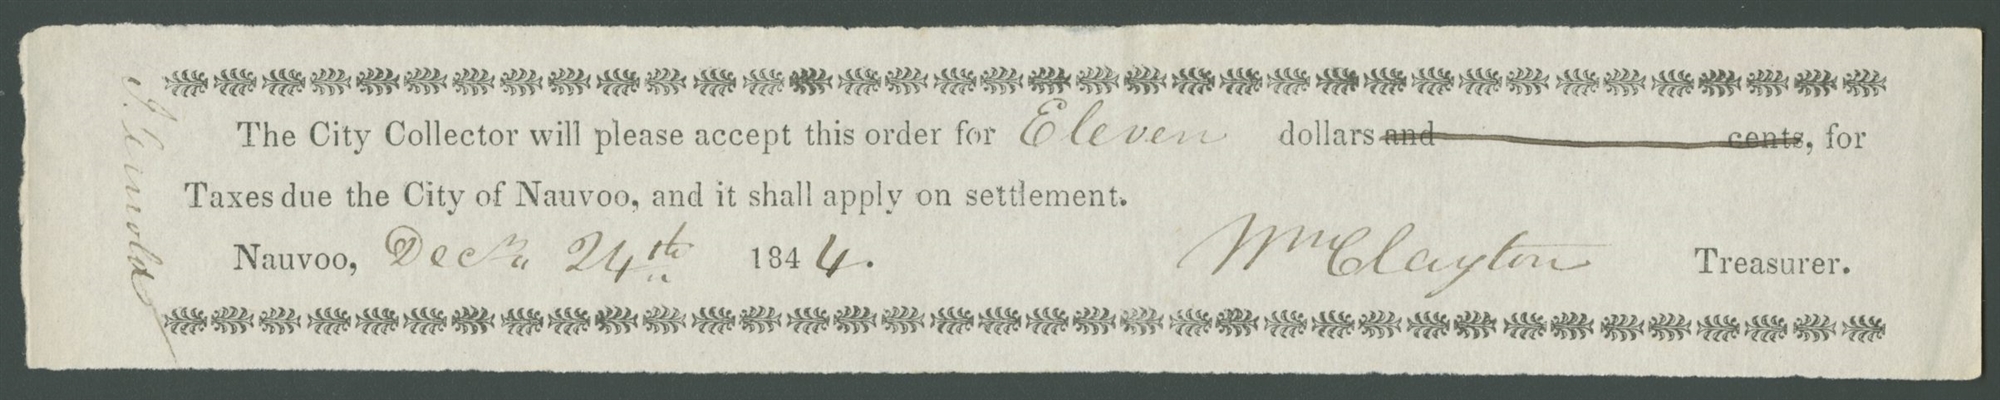 The City Collector will please accept this order for Eleven dollars and cents, for
Taxes due the City of Nauvoo, and it shall apply on settlement.
Nauvoo, Decr. 24th 1844. Wm Clayton Treasurer.